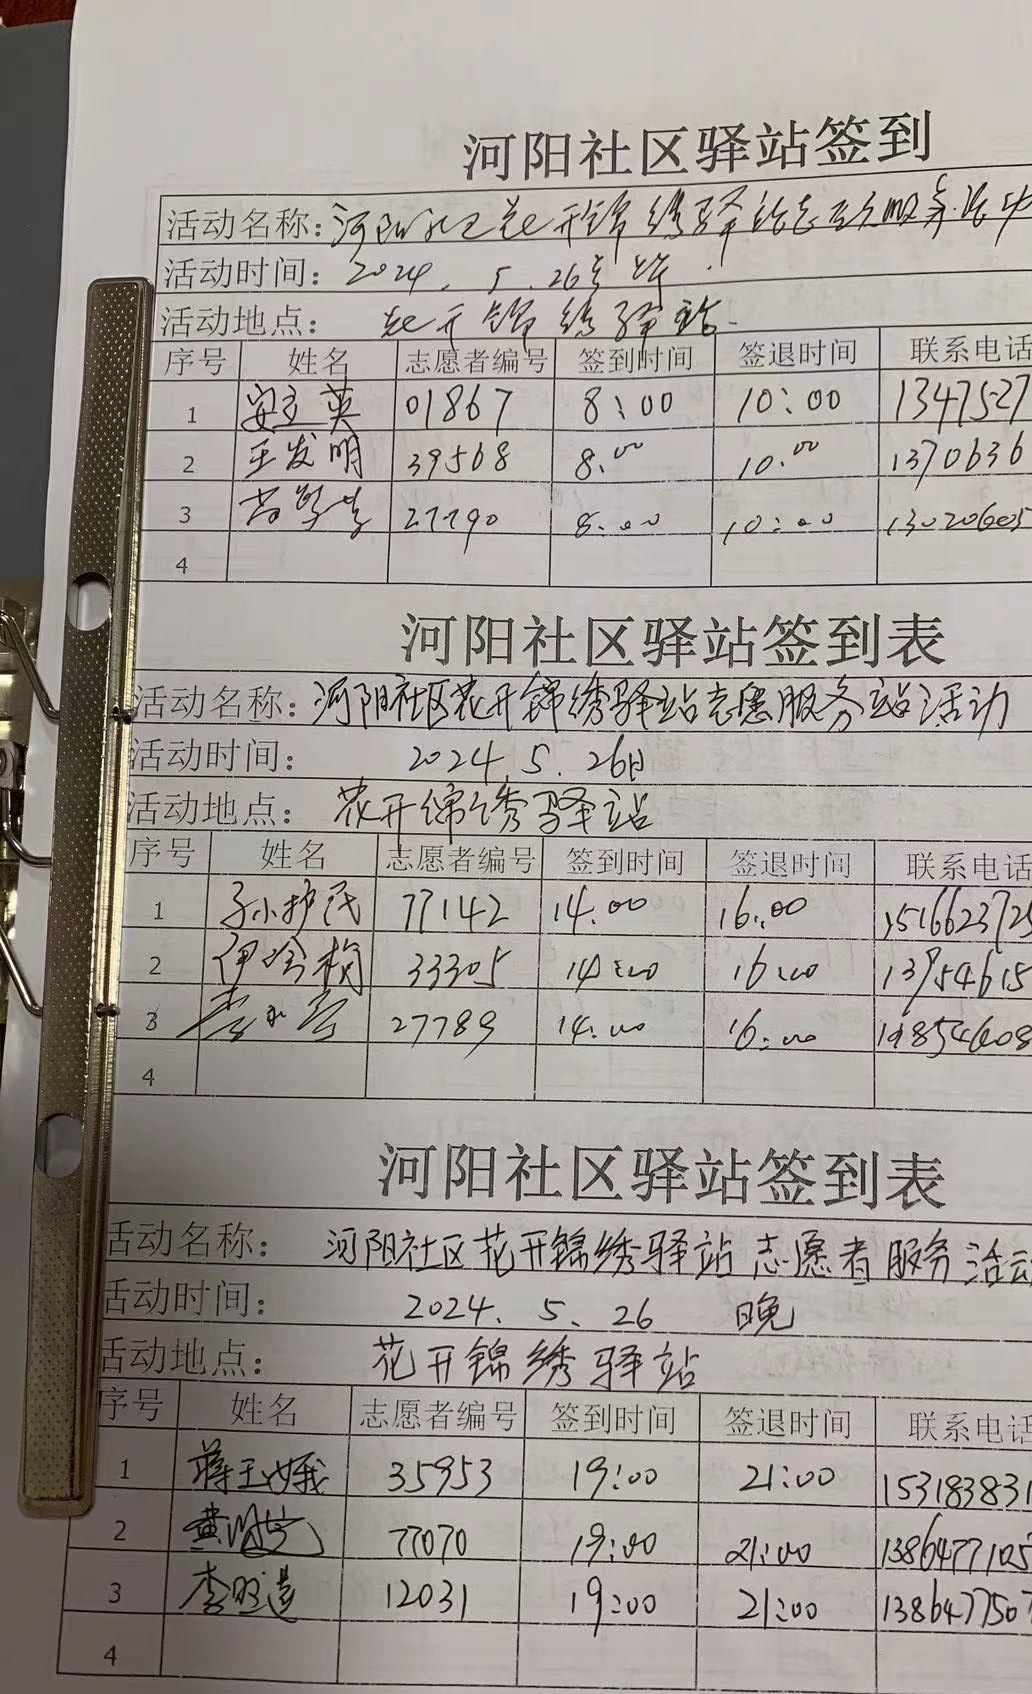 河阳社区驿站签到
活动名称:河阳社区花开锦绣驿站志愿服务活动
活动时间: 2024. 5. 26号
活动地点: 花开锦绣驿站
序号 姓名 志愿者编号 签到时间 签退时间 联系电话
1 安玉英 01867 8:00 10:00 1347527
2 王发明 39568 8:00 10:00 1370636
3 27790 8:00 10:00 130206605
4
河阳社区驿站签到表
活动名称:河阳社区花开锦绣驿站志愿服务站活动
活动时间: 2024.5.26日
活动地点: 花开绵绣驿站
序号 姓名 志愿者编号 签到时间 签退时间 联系电话
1 77142 14:00 16:00 1516623725
2 33305 14:00 16:00 13954615
3 27789 14:00 16:00 1985460
4
河阳社区驿站签到表
活动名称: 河阳社区花开锦绣驿站志愿者服务活动
活动时间: 2024. 5. 26 晚
活动地点: 花开锦绣驿站
序号 姓名 志愿者编号 签到时间 签退时间 联系电话
1 蒋玉娥 35953 19:00 21:00 153183831
2 77070 19:00 21:00 1386477105
3 12031 19:00 21:00 138647750
4